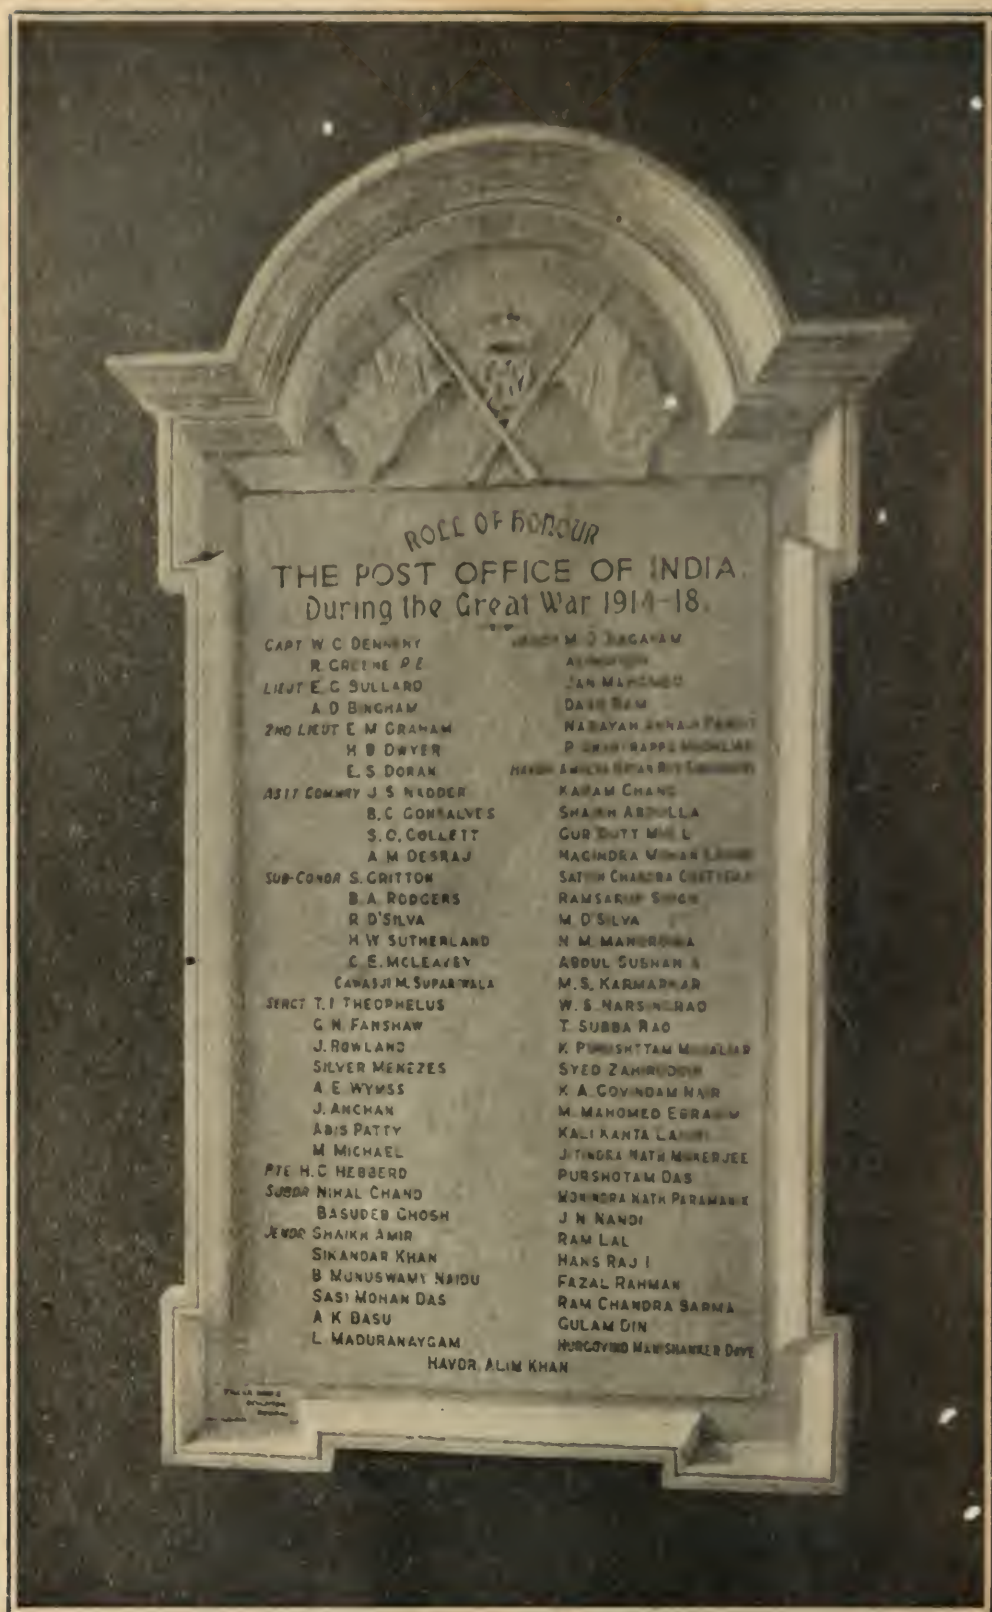 ROLL OF HONOUR
THE POST OFFICE OF INDIA.
During the Great War 1914-18.
CAPT W. C. DENNEHY
R. GREENE R.E.
LIEUT E. G. BULLARD
A. D. BINGHAM
2ND LIEUT E. M. GRAHAM
H. B. DWYER
E. S. DORAN
J. S. NADDER
B. C. GONSALVES
S. C. COLLETT
A. M. DESRAJ
SUB-CONDR S. GRITTON
B. A. RODGERS
R. D'SILVA
H. W. SUTHERLAND
C. E.
CAWASJI M. SUPARIWALA
SERGT T. I. THEOPHELUS
G. N. FANSHAW
J. ROWLAND
SILVER MENEZES
A. E. WYMSS
J. ANCHAN
ABIS PATTY
M. MICHAEL
PTE H. C. HEBBERD
SUBDR NIHAL CHAND
BASUDEB GHOSH
JEMDR SHAIKH AMIR
SIKANDAR KHAN
B. MUNUSWAMY NAIDU
SASI MOHAN DAS
A. K. BASU
L. MADURANAYGAM
M. D.
JAN MAHOMED
RAM
NARAYAN ANNAJI
P.
KARAM CHAND
SHAIKH ABDULLA
GUR DUTT
NAGINDRA MOHAN
SATISH CHANDRA
RAMSARUP SINGH
M. D'SILVA
N. M.
ABDUL SUBHAN
M. S. KARMARKAR
W. S. NARSINGRAO
T. SUBBA RAO
K. MUDALIAR
SYED ZAHIRUDDIN
K. A. GOVINDAM NAIR
M. MAHOMED EBRAHIM
KALI KANTA
JITINDRA NATH MUKERJEE
PURSHOTAM DAS
MONINDRA NATH PARAMANIK
J. N. NANDI
RAM LAL
HANS RAJ I
FAZAL RAHMAN
RAM CHANDRA SARMA
GULAM DIN
HURGOVIND MANISHANKER DAVE
HAVDR. ALIM KHAN